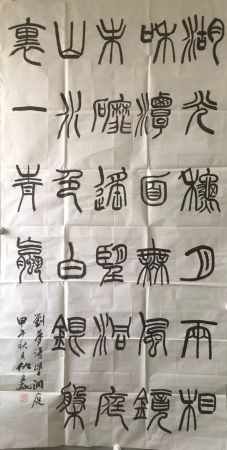 湖光秋月兩相
和潭面無風鏡
未磨遙望洞庭
山水色白銀盤
裏一青螺
劉望洞庭
甲午秋月